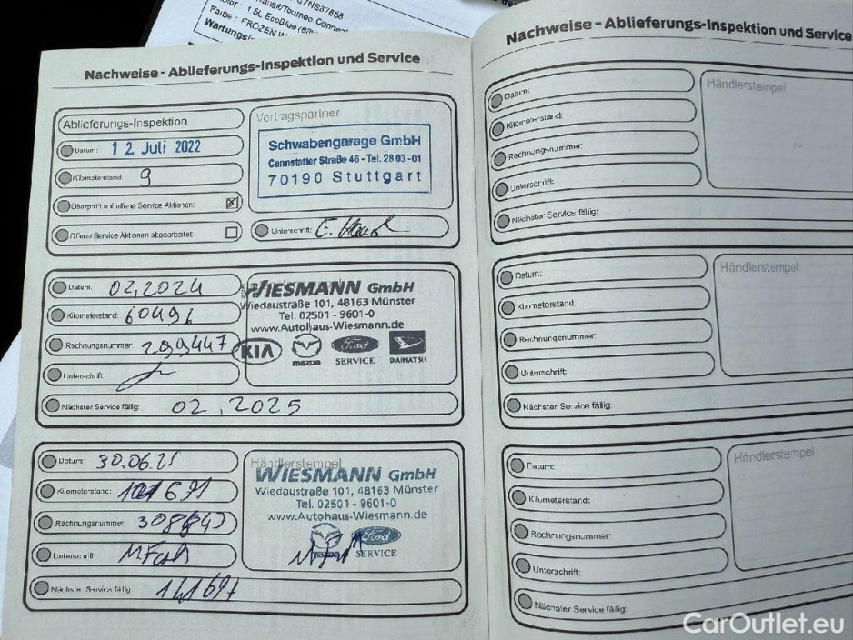 Motor: 1.5L EcoBlue
Farbe: FROZEN
Wartungs
Nachweise - Ablieferungs-Inspektion und Service
Ablieferungs-Inspektion
Datum: 12. Juli 2022
Kilometerstand: 9
Überprüft auf offene Service Aktionen:
Offene Service Aktionen abgearbeitet:
Vertragspartner
Schwabengarage GmbH
Cannstatter Straße 46 - Tel. 2803-01
70190 Stuttgart
Unterschrift:
Datum: 02,2024
Kilometerstand: 60496
Rechnungsnummer: 299447
Unterschrift:
Nächster Service fällig: 02, 2025
WIESMANN GmbH
Wiedaustraße 101, 48163 Münster
Tel. 02501 - 9601-0
www.Autohaus-Wiesmann.de
KIA mazda Ford SERVICE DAIHATSU
Datum: 30.06.25
Kilometerstand: 101691
Rechnungsnummer:
Unterschrift:
Nächster Service fällig: 141691
Händlerstempel
WIESMANN GmbH
Wiedaustraße 101, 48163 Münster
Tel. 02501 - 9601-0
www.Autohaus-Wiesmann.de
Ford
SERVICE
Nachweise - Ablieferungs-Inspektion und Service
Datum:
Kilometerstand:
Rechnungsnummer:
Unterschrift:
Nächster Service fällig:
Händlerstempel
Datum:
Kilometerstand:
Rechnungsnummer:
Unterschrift:
Nächster Service fällig:
Händlerstempel
Datum:
Kilometerstand:
Rechnungsnummer:
Unterschrift:
Nächster Service fällig:
Händlerstempel
CarOutlet.eu